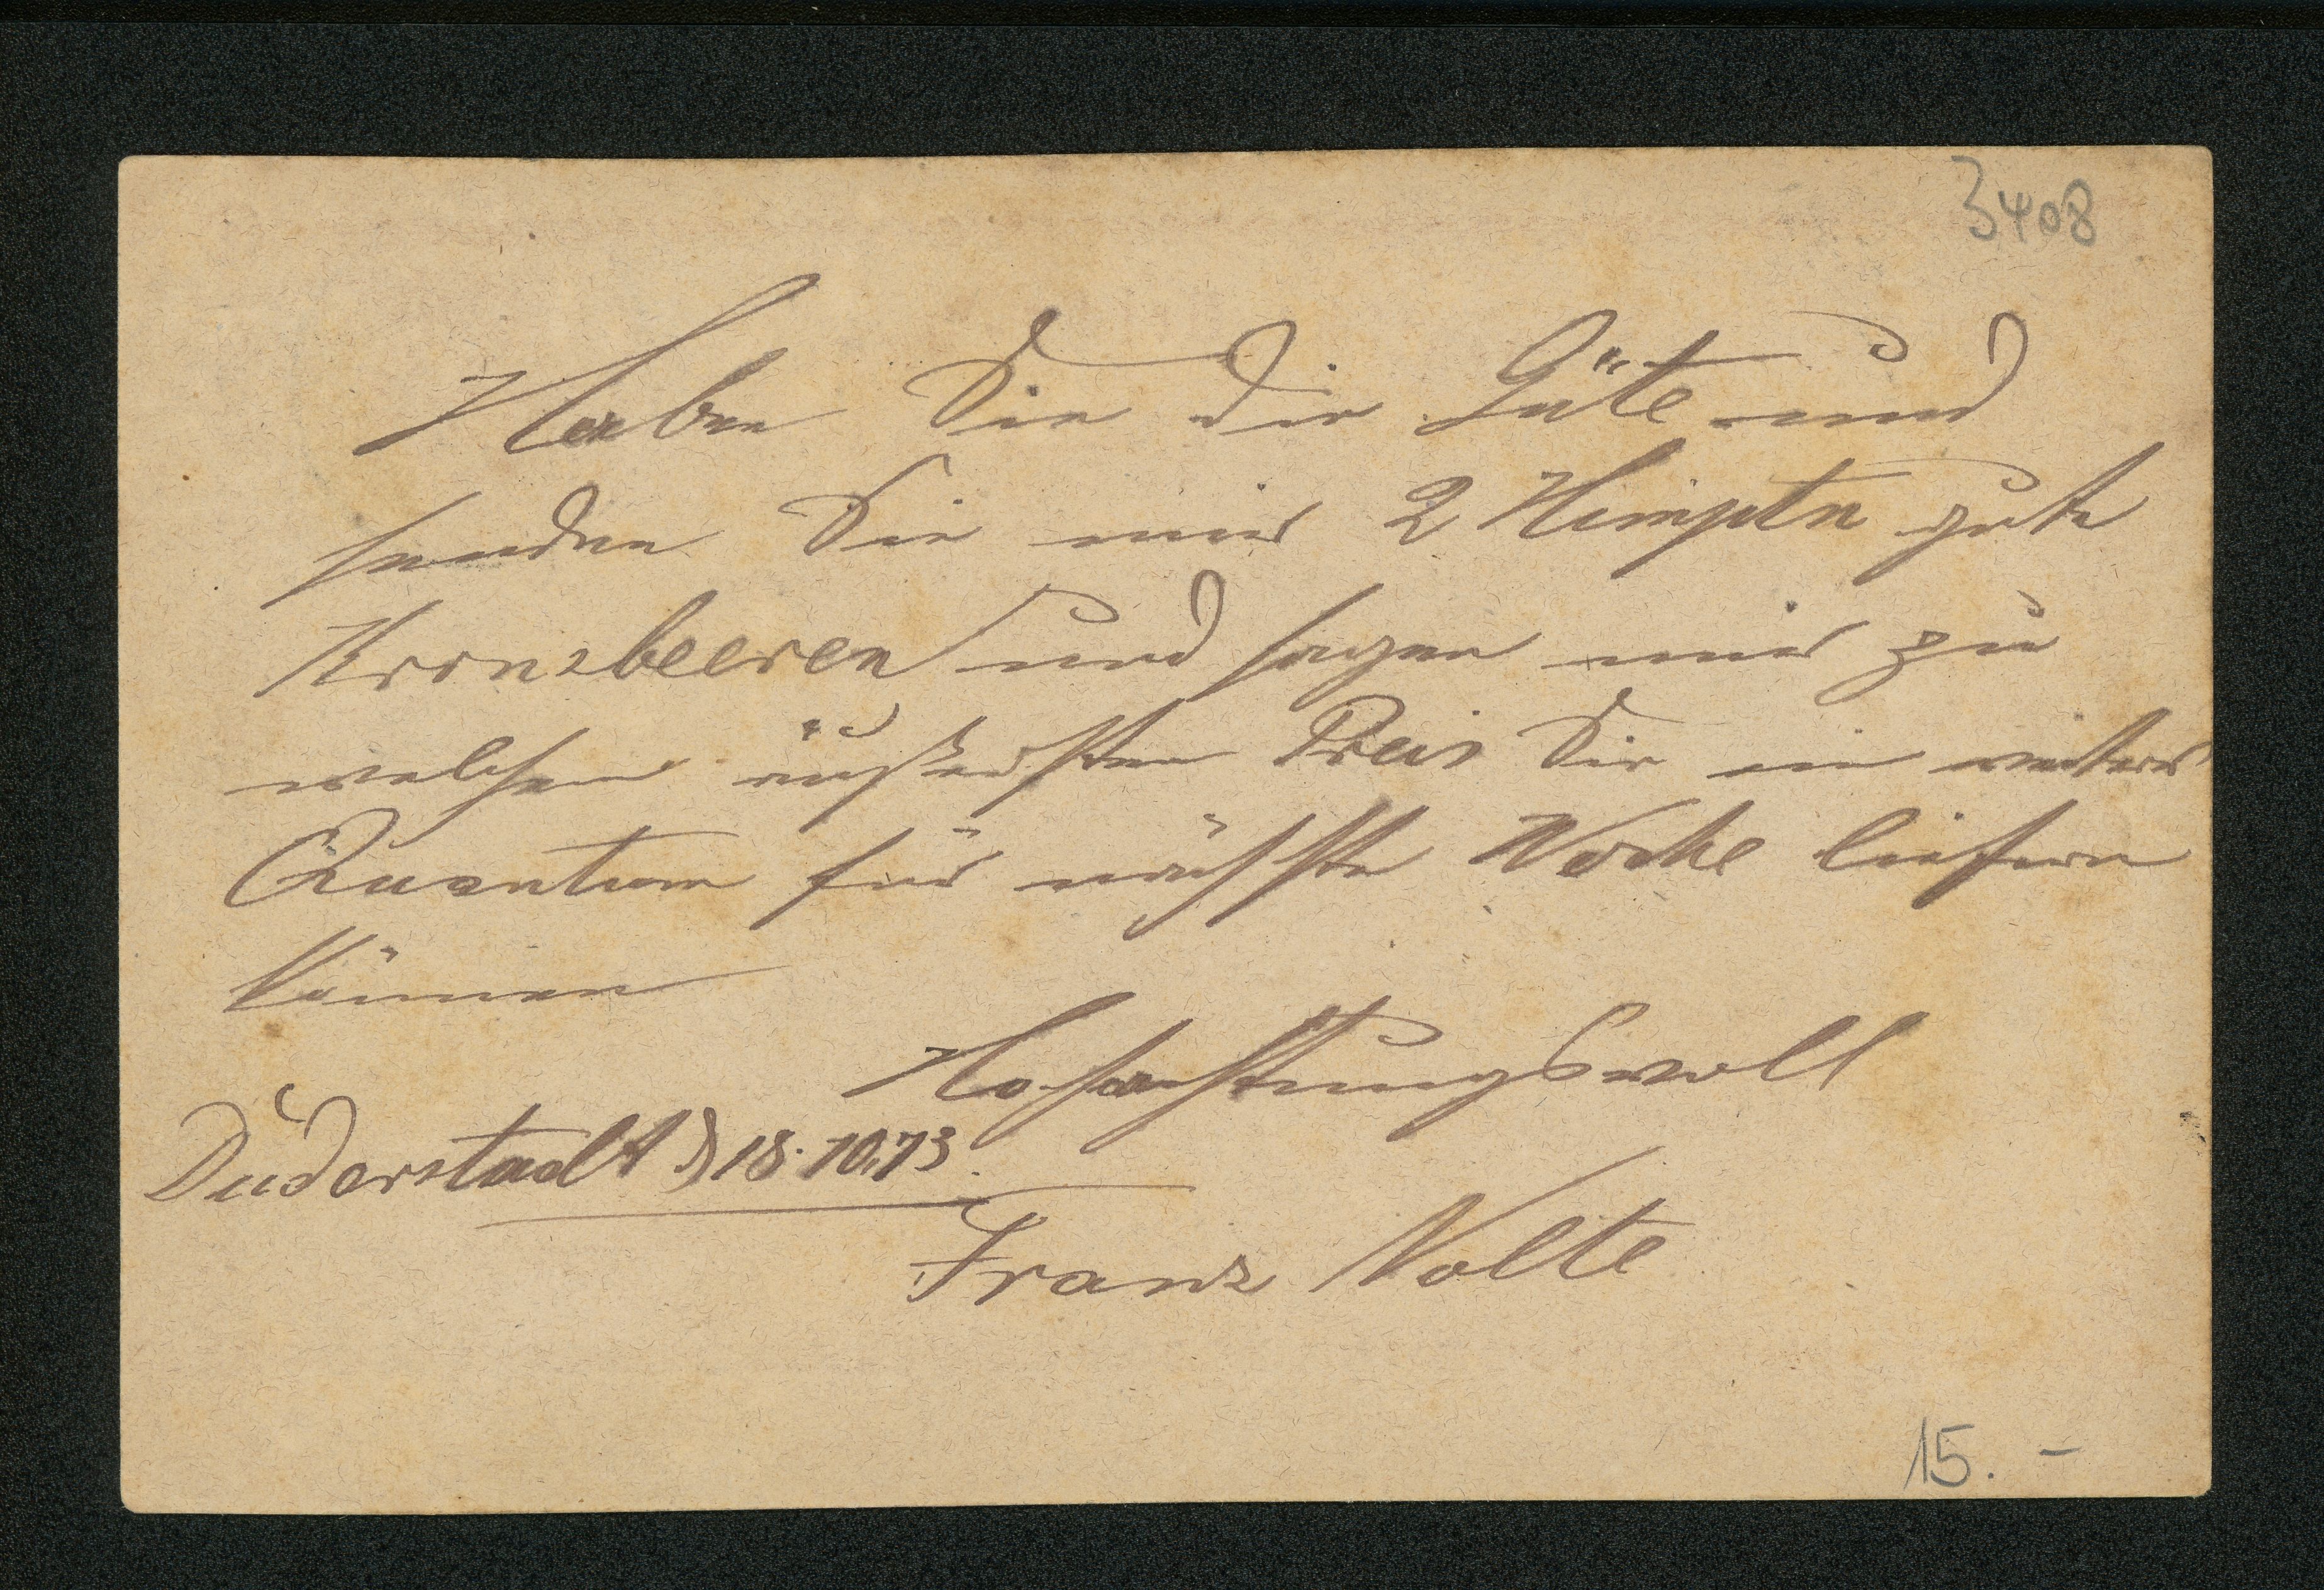 3408
Haben Sie die Güte und
senden Sie mir 2 Himpten gute
Kronsbeeren und sagen mir zu
welchem äußersten Preis Sie ein weiters
Quantum für nächste Woche liefern
können
Hochachtungsvoll
Duderstadt d 18.10.73.
Franz Nolte
15. –